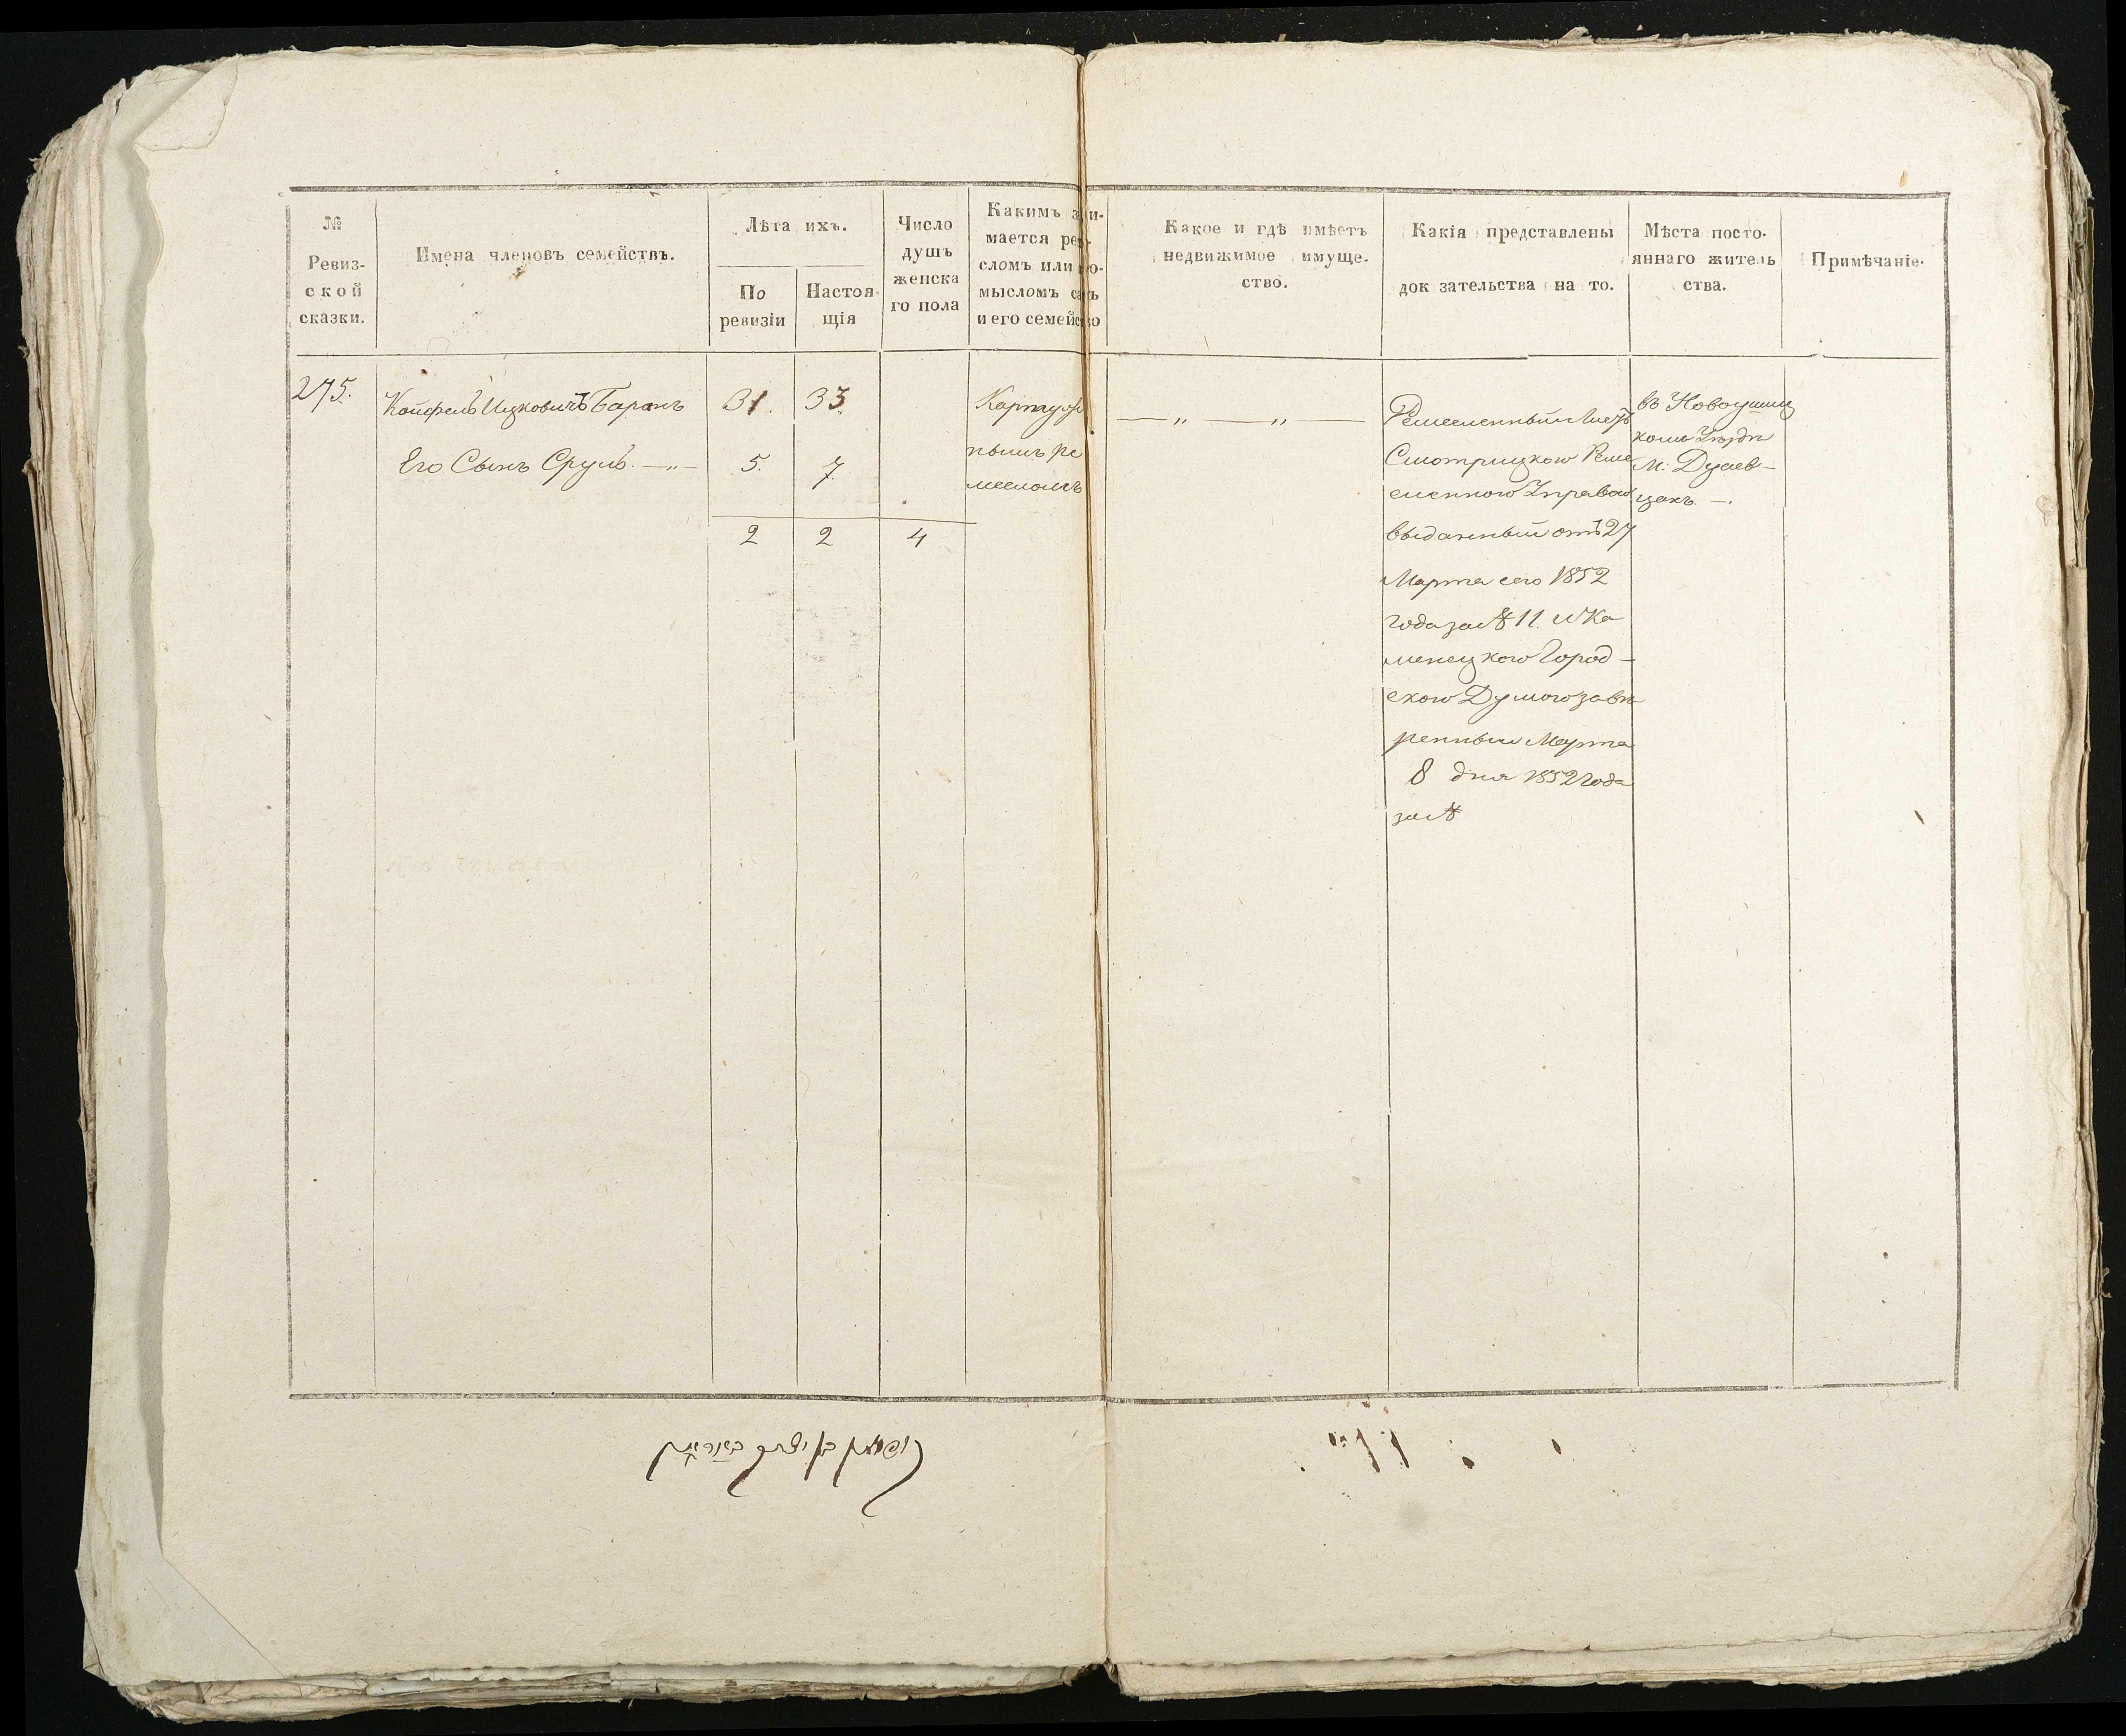 № Ревиз- ской сказки.
Имена членовъ семействъ.
Лѣта ихъ.
По ревизіи
Настоя- щія
Число душъ женска го пола
Какимъ з и-
мается ре
сломъ или о-
мысломъ с ъ
и его семейс о
Какое и гдѣ имѣетъ
недвижимое имуще-
ство.
Какія представлены
док зательства на то.
Мѣста посто-
яннаго житель
ства.
Примѣчаніе.
275.
Койфель Ицковичъ Баранъ
31. 33
Его Сынъ Сруль. — „ —
5. 7.
2 2 4
нымъ ре
месломъ
— „ — „ —
Ремесленный Листъ
Смотрицкою Реме
сленною Управою
выданный отъ 27
Марта сего 1852
года за № 11. и Ка
менецкою Город-
скою Думою завѣ
ренный Марта
8 дня 1852 года
за №
въ Новоушиц
комъ Уѣздѣ
М. Дунаев-
цахъ. —.
בן יצחק